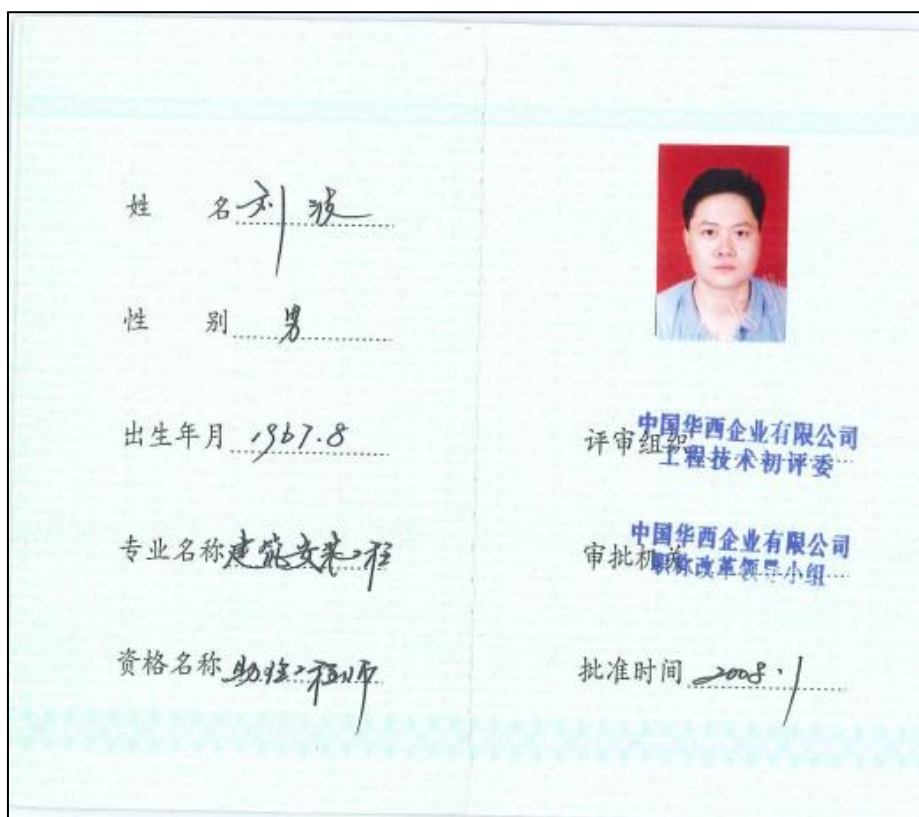 姓 名 刘波
性 别 男
出生年月 1967.8
专业名称 建筑安装工程
资格名称 助理工程师
评审组织 中国华西企业有限公司
工程技术初评委
审批机关 中国华西企业有限公司
职称改革领导小组
批准时间 2008.1